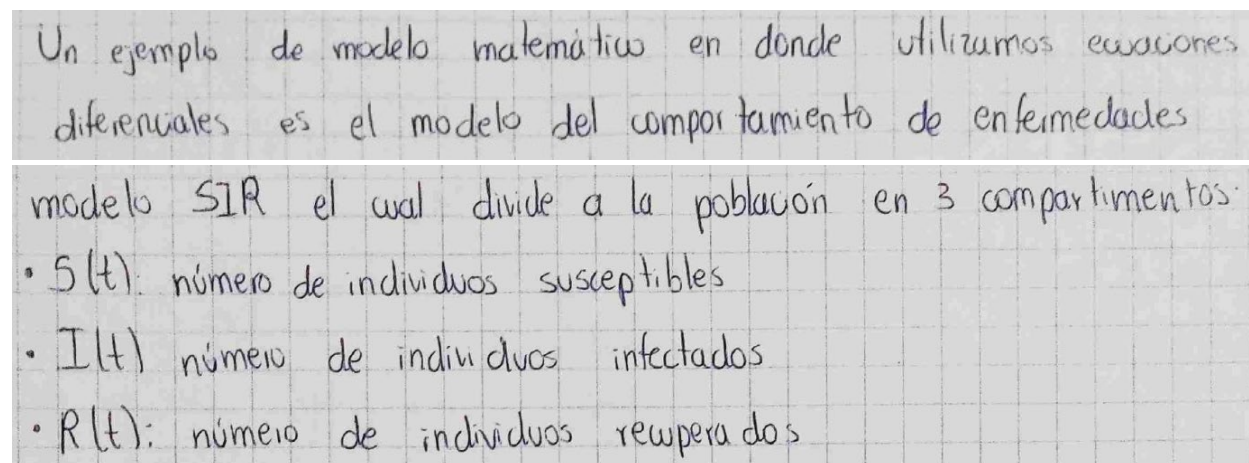 Un ejemplo de modelo matemático en donde utilizamos ecuaciones
diferenciales es el modelo del comportamiento de enfermedades
modelo SIR el cual divide a la población en 3 compartimentos:
• S(t): número de individuos susceptibles
• I(t) número de individuos infectados
• R(t): número de individuos recuperados